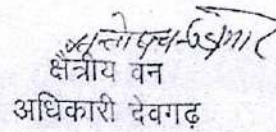 क्षेत्रीय वन
अधिकारी देवगढ़